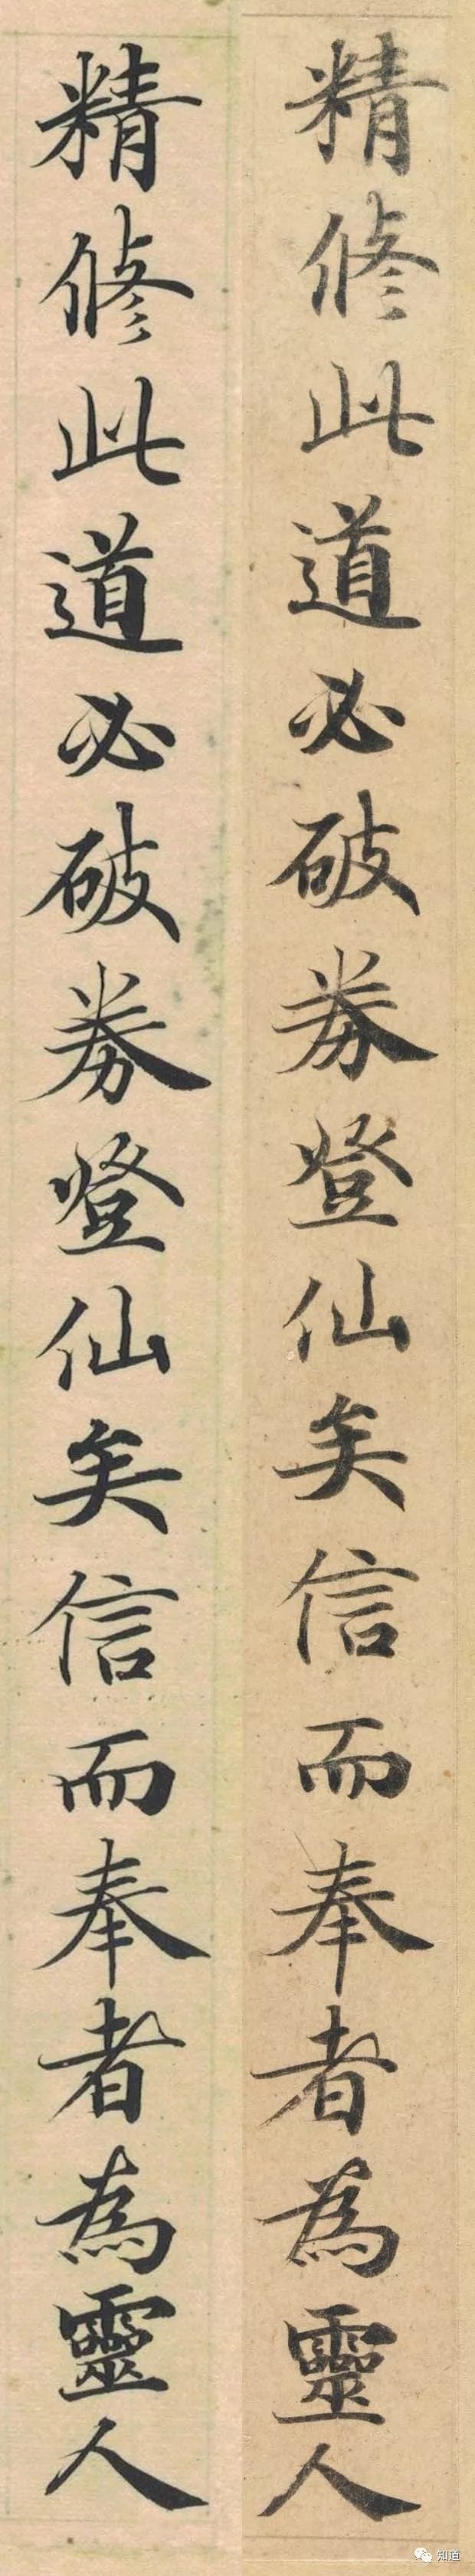 精修此道必破券登仙矣信而奉者為靈人
精修此道必破券登仙矣信而奉者為靈人
知道